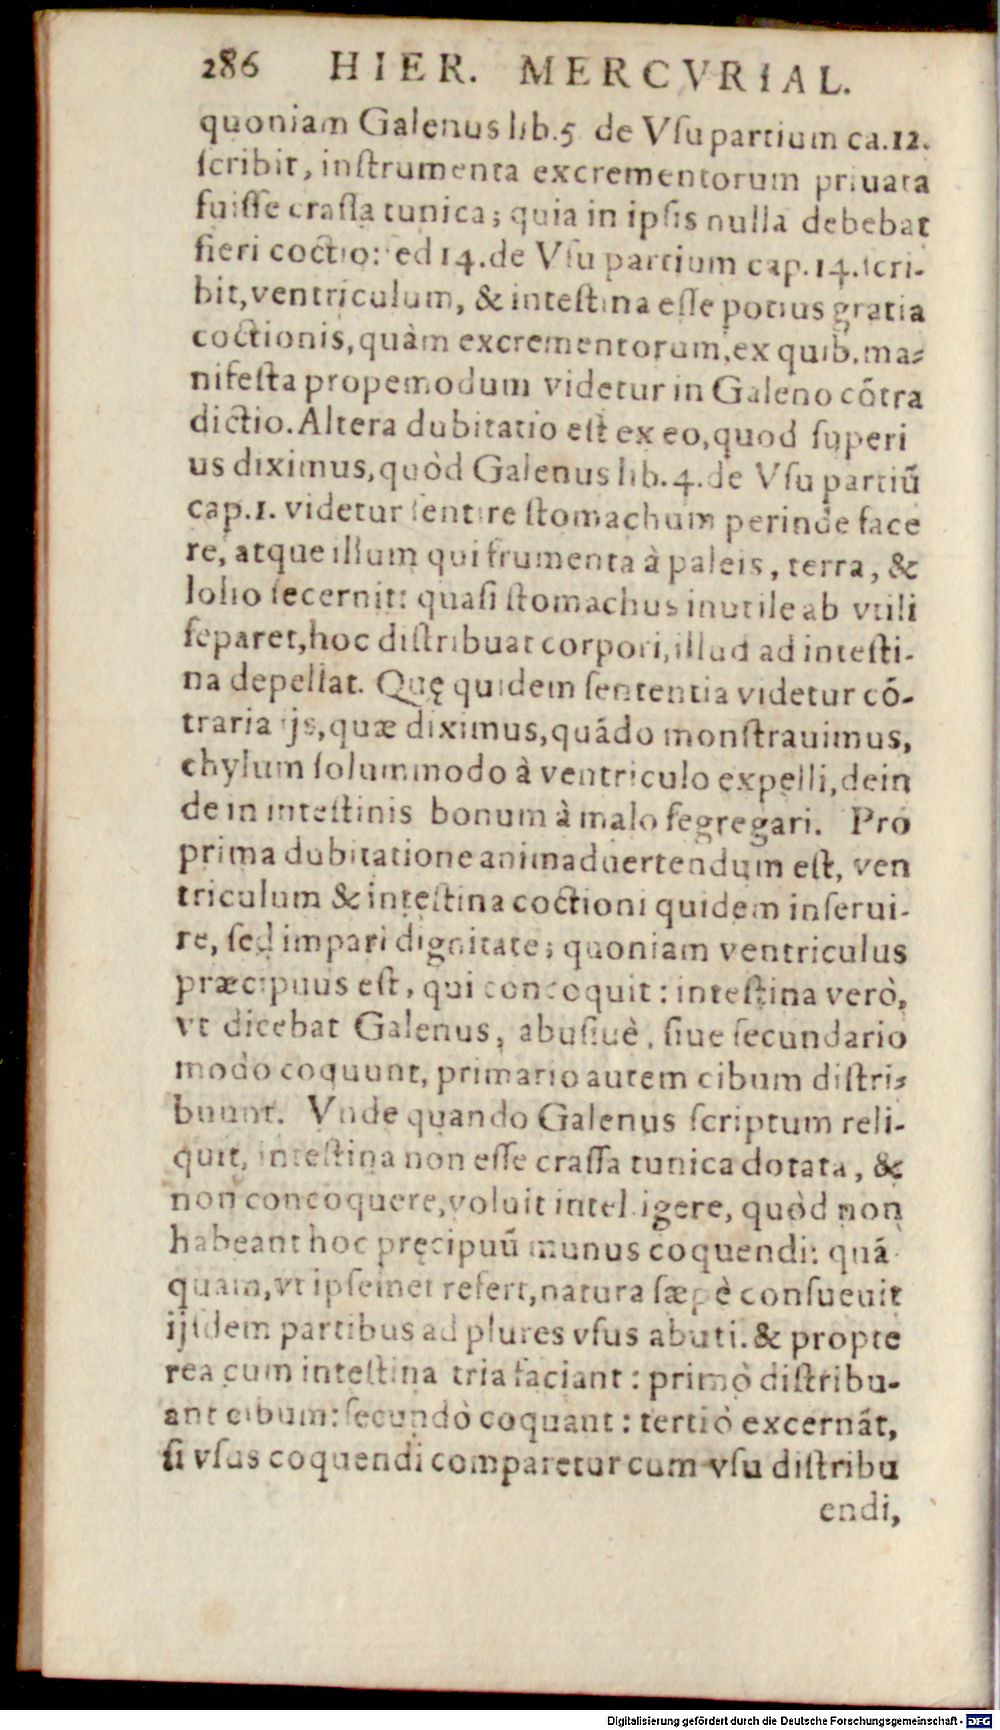 286 HIER. MERCVRIAL.
quoniam Galenus lib.5 de Vſu partium ca.12.
ſcribit, inſtrumenta excrementorum priuata
fuiſſe craſſa tunica; quia in ipſis nulla debebat
fieri coctio: ſed 14.de Vſu partium cap.14.ſcri-
bit, ventriculum, & inteſtina eſſe potius gratia
coctionis, quàm excrementorum, ex quib. ma-
nifeſta propemodum videtur in Galeno cõtra
dictio. Altera dubitatio eſt ex eo, quod ſuperi
us diximus, quòd Galenus lib. 4. de Vſu partiũ
cap.1. videtur ſentire ſtomachum perinde face
re, atque illum qui frumenta à paleis, terra, &
lolio ſecernit: quaſi ſtomachus inutile ab vtili
ſeparet, hoc diſtribuat corpori, illud ad inteſti-
na depellat. Quę quidem ſententia videtur cõ-
traria ijs, quæ diximus, quãdo monſtrauimus,
chylum ſolummodo à ventriculo expelli, dein
de in inteſtinis bonum à malo ſegregari. Pro
prima dubitatione animaduertendum eſt, ven
triculum & inteſtina coctioni quidem inſerui-
re, ſed impari dignitate; quoniam ventriculus
præcipuus eſt, qui concoquit: inteſtina verò,
vt dicebat Galenus, abuſiuè, ſiue ſecundario
modo coquunt, primario autem cibum diſtri-
buunt. Vnde quando Galenus ſcriptum reli-
quit, inteſtina non eſſe craſſa tunica dotata, &
non concoquere, voluit intelligere, quòd non
habeant hoc pręcipuũ munus coquendi: quã
quam, vt ipſemet refert, natura ſæpè conſueuit
ijſdem partibus ad plures vſus abuti. & propte
rea cum inteſtina tria faciant: primò diſtribu-
ant cibum: ſecundò coquant: tertiò excernãt,
ſi vſus coquendi comparetur cum vſu diſtribu
endi,
Digitalisierung gefördert durch die Deutsche Forschungsgemeinschaft - DFG